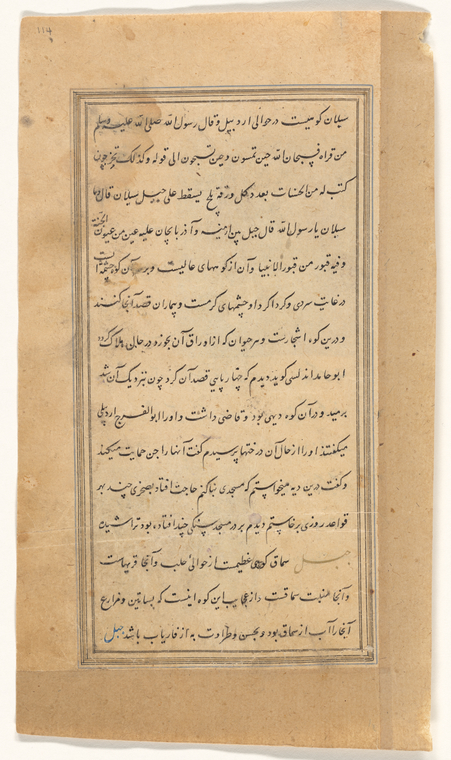 114
سبلان کوهیست در حوالی اردبیل و قال رسول الله صلی الله علیه وسلم
من قراء فسبحان الله حین تمسون و حین تصبحون الی قوله و کذلک تخرجون
کتب له من الحسنات بعدد کل ورقة ثلج یسقط علی جبل سبلان قال وما
سبلان یا رسول الله قال جبل بین ارمنیه و آذربایجان علیه عین من عیون الجنة
و فیه قبور من قبور الانبیا و آن از کوههای عالیست و بر سر آن کوه چشمه است
در غایت سردی و گرداگرد او چشمهای گرمست و بیماران قصد آنجا کنند
و درین کوه اشجارست و هر حیوان که از اوراق آن بخورد در حال هلاک گردد
ابو حامد اندلسی گوید دیدم که چهارپایی قصد آن کرد چون نزدیک آن شد
برمید و در آن کوه دیهی بود و قاضی داشت و او را ابو الفرج اردبیلی
میگفتند او را از حال آن درختها پرسیدم گفت آنها را جن حمایت میکند
و گفت درین دیه میخواستم که مسجدی بنا کنم حاجت افتاد بصخری چند بهر
قواعد روزی برخاستم دیدم بر در مسجد سنگی چند افتاده بود تراشیده
جبل سماق کوهی عظیمست از حوالی حلب و آنجا قریهاست
و آنجا منبت سماقست و از عجایب این کوه اینست که بساتین و مزارع
آنجا را آب از سماق بود و بحسن و طراوت به از فاریاب باشد جبل